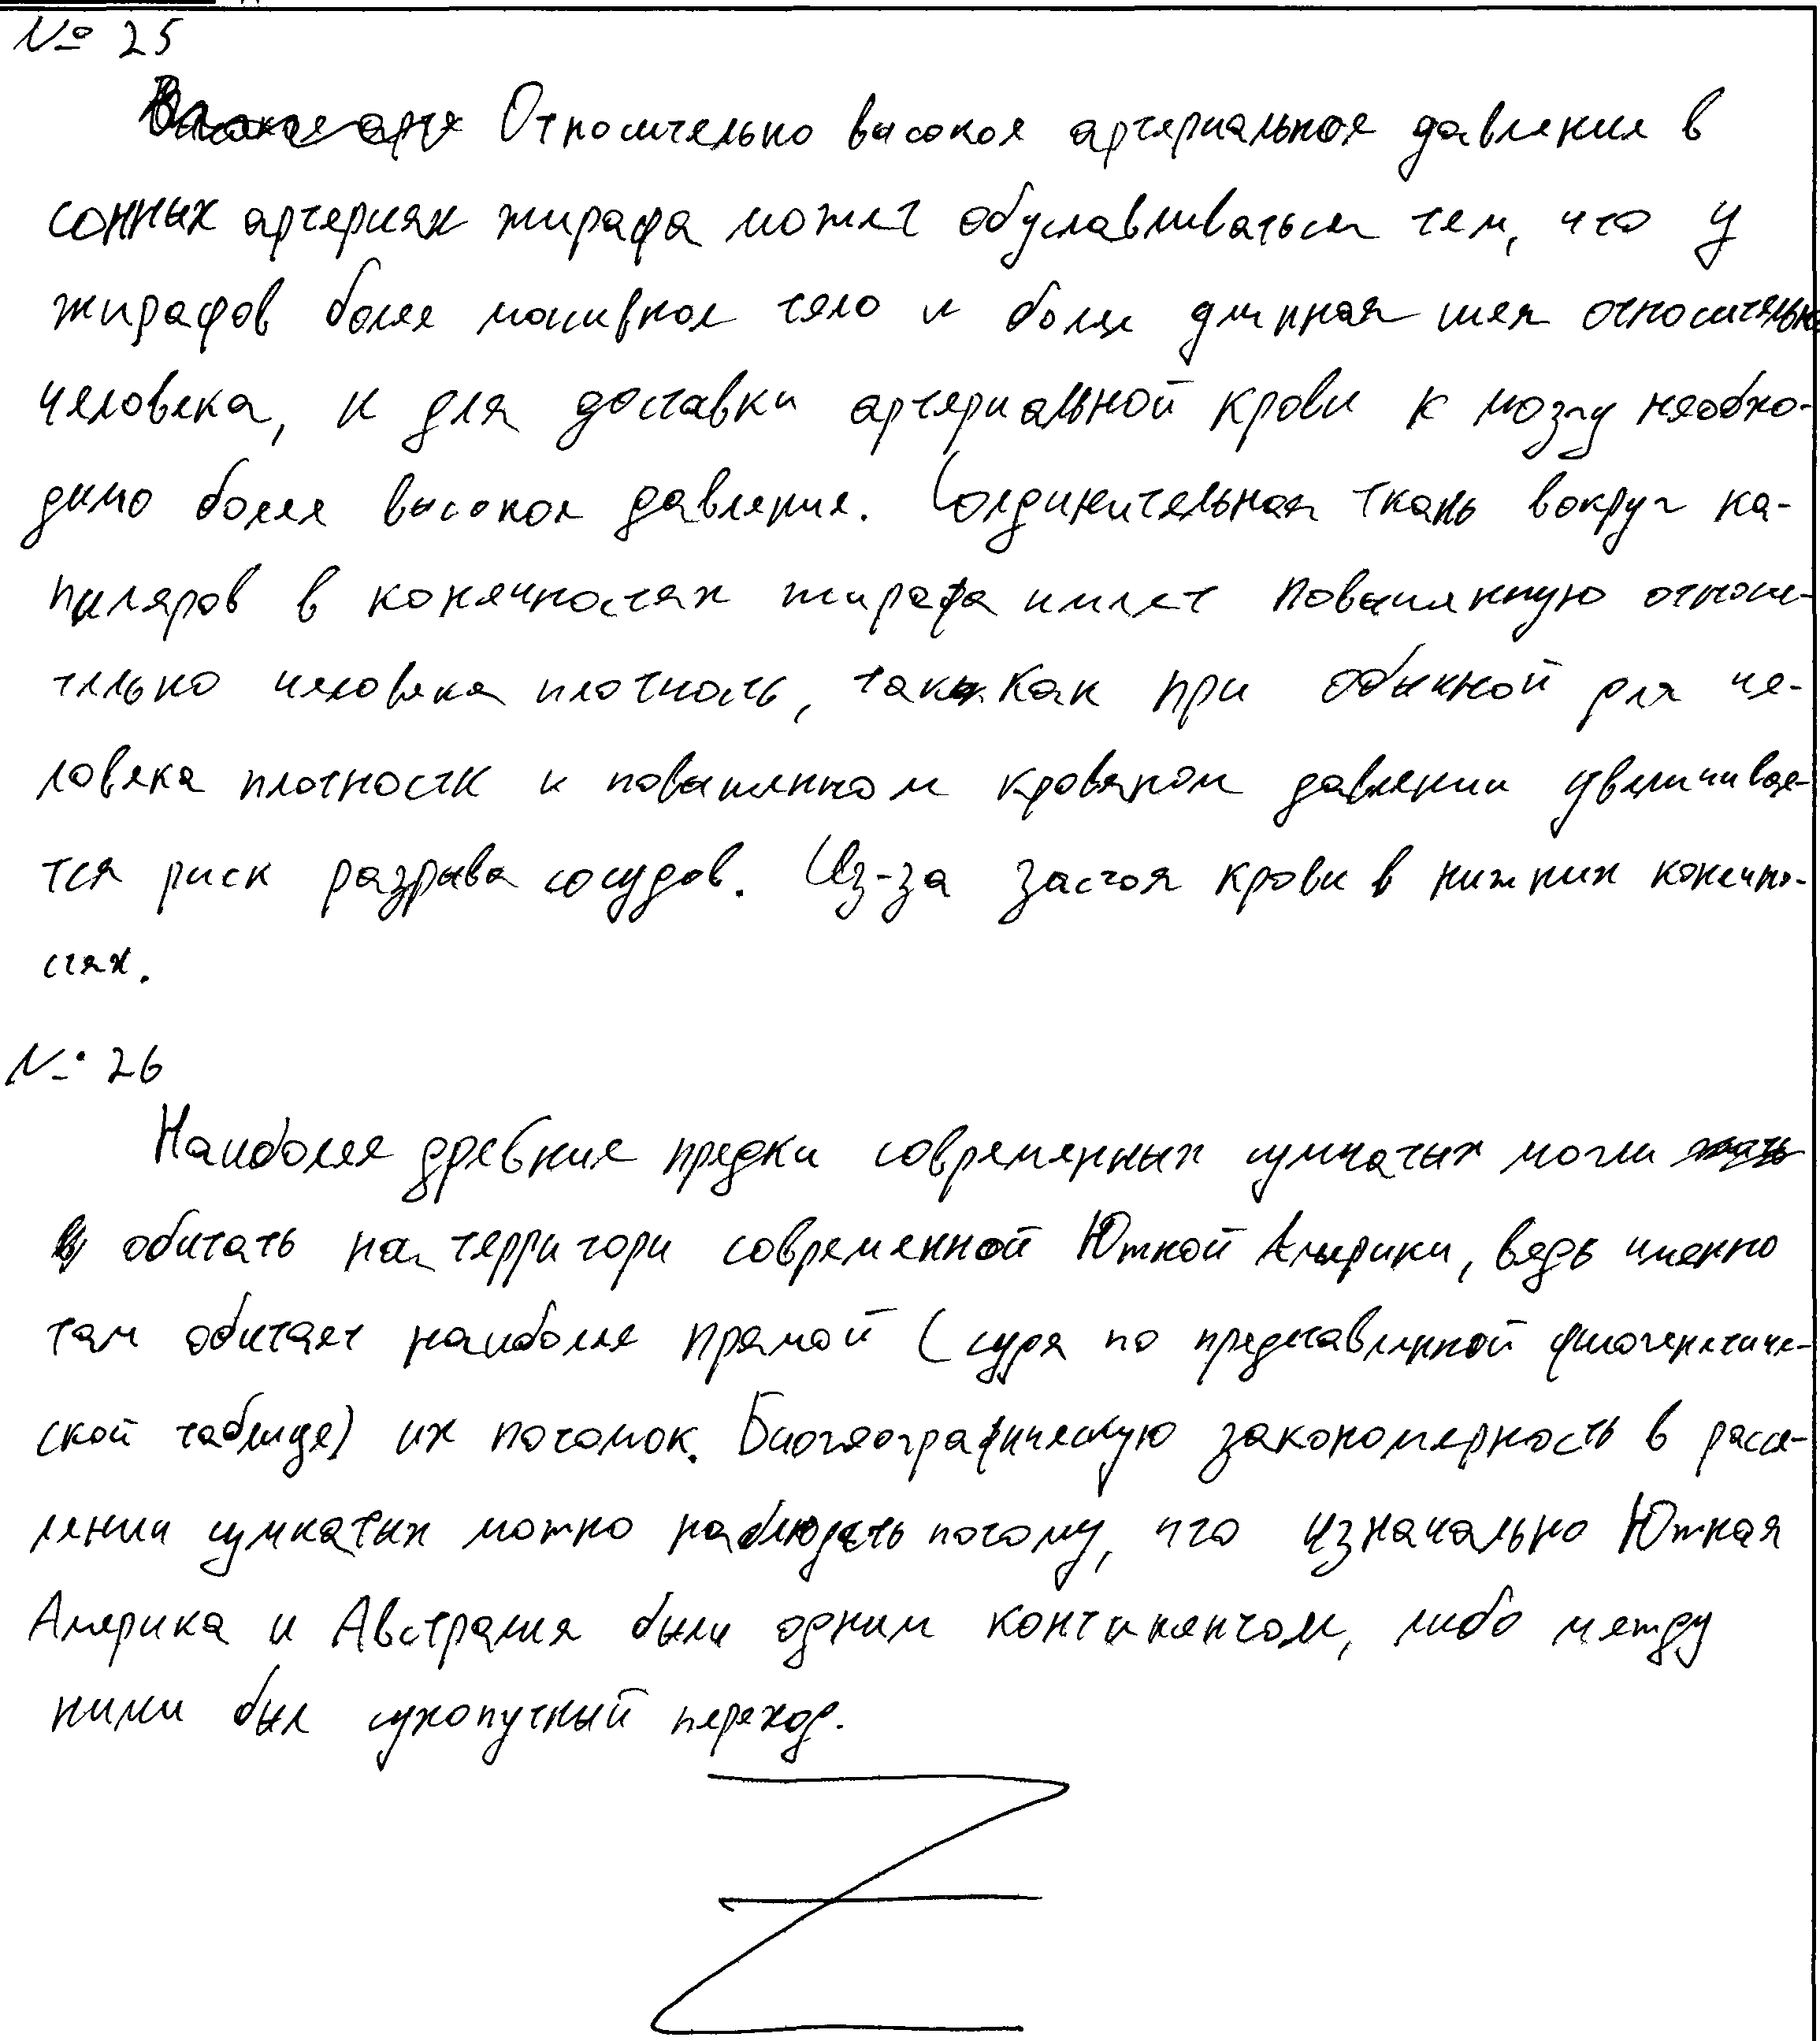 № 25
Относительно высокое артериальное давление в
сонных артериях жирафа может обуславливаться тем, что у
жирафов более массивное тело и более длинная шея относительно
человека, и для доставки артериальной крови к мозгу необхо-
димо более высокое давление. Соединительная ткань вокруг ка-
пиляров в конечностях жирафа имеет повышенную относи-
тельно человека плотность, так как при обычной для че-
ловека плотности и повышенном кровяном давлении увеличивае-
тся риск разрыва сосудов. Из-за застоя крови в нижних конечно-
стях.
№ 26
Наиболее древние предки современных сумчатых могли
обитать на территори современной Южной Америки, ведь именно
там обитает наиболее прямой (судя по представленной филогенетиче-
ской таблице) их потомок. Биогеографическую закономерность в рассе-
лении сумчатых можно наблюдать потому, что изначально Южная
Америка и Австралия были одним континентом, либо между
ними был сухопутный переход.